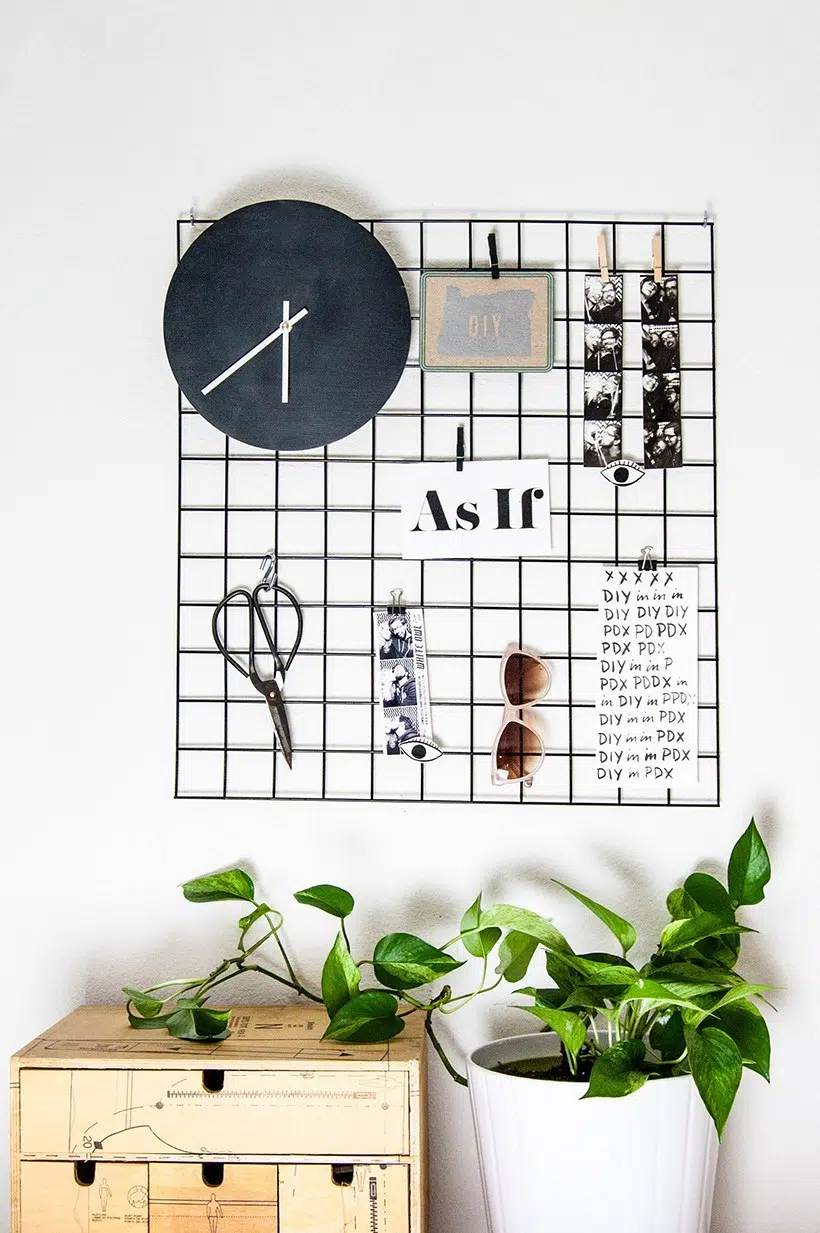 DIY
As If
WHITE OWL
X X X X X
DIY in in in
DIY DIY DIY
PDX PD PDX
PDX PDX
DIY in in P
PDX PDDX in
in DIY in PPDX
DIY in in PDX
DIY in in PDX
DIY in in PDX
DIY in PDX
N
20